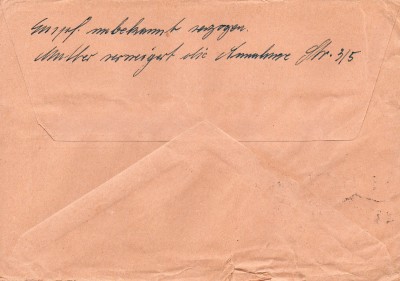 Empf. unbekannt verzogen.
Mutter verweigert die Annahme Str. 3/5